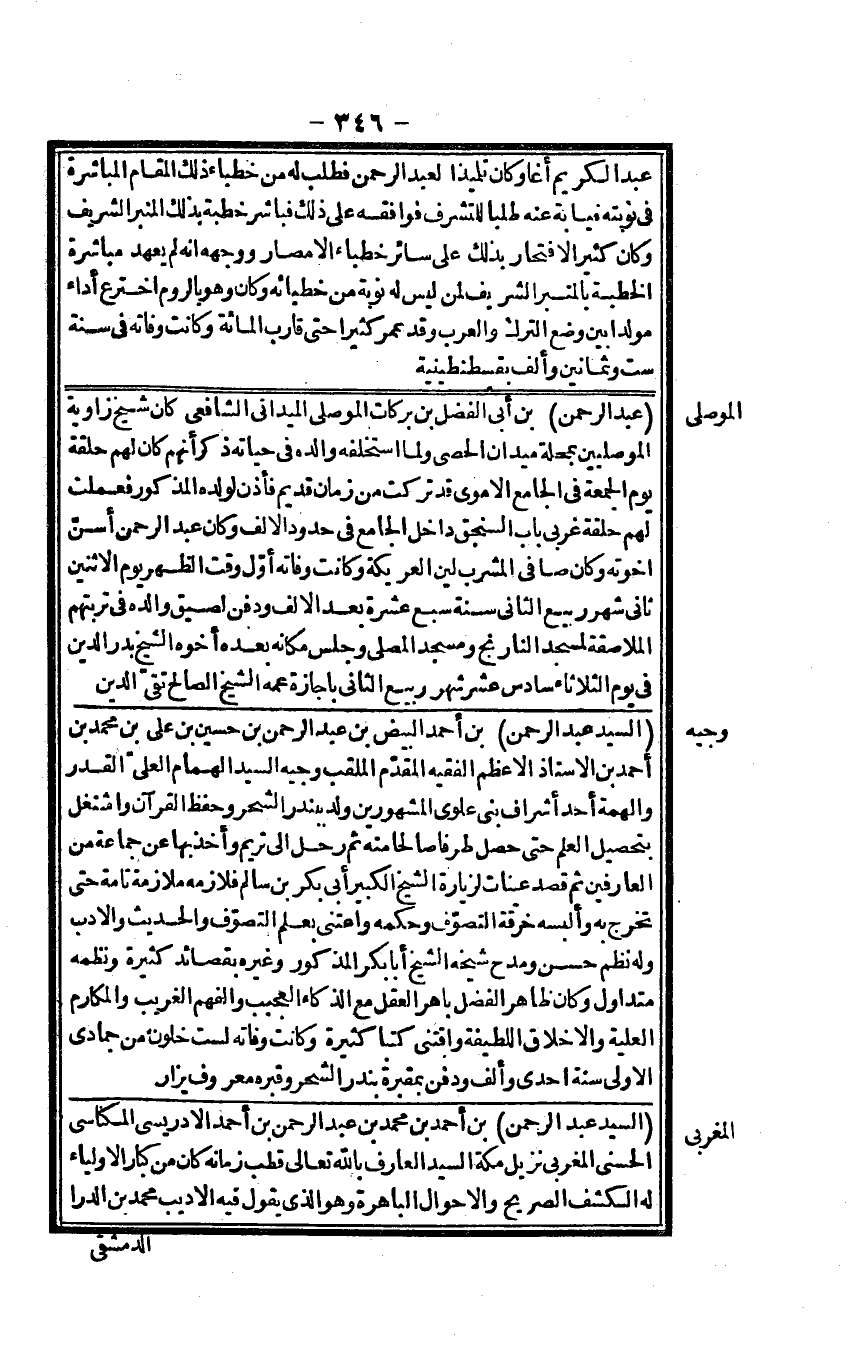 - ٣٤٦ -
عبد الكريم أغا وكان تليذا لعبد الرحمن فطلب له من خطباء ذلك المقام المباشرة
فى نوبته نيابة عنه طلبا للتشرف فوافقه على ذلك فباشر خطبة بذلك المنبر الشريف
وكان كثير الافتخار بذلك على سائر خطباء الامصار ووجهه انه لم يعهد مباشرة
الخطبة بالمنبر الشريف لمن ليس له نوبة من خطبائه وكان وهو بالروم اخترع أداء
مولدا بين وضع الترك والعرب وقد عمر كثيرا حتى قارب المائة وكانت وفاته فى سنة
ست وثمانين وألف بقسطنطينية
الموصلى
(عبد الرحمن) بن أبى الفضل بن بركات الموصلى الميدانى الشافعى كان شيخ زاوية
الموصليين بمحلة ميدان الحصى ولما استخلفه والده فى حياته ذكر أنهم كان لهم حلقة
يوم الجمعة فى الجامع الاموى قد تركت من زمان قديم فأذن لولده المذكور فعملت
لهم حلقة غربى باب السنجق داخل الجامع فى حدود الالف وكان عبد الرحمن أسنّ
اخوته وكان صافى المشرب لين العريكة وكانت وفاته أوّل وقت الظهر يوم الاثنين
ثانى شهر ربيع الثانى سنة سبع عشرة بعد الالف ودفن لصيق والده فى تربتهم
الملاصقة لمسجد النارنج ومسجد المصلى وجلس مكانه بعده أخوه الشيخ بدر الدين
فى يوم الثلاثاء سادس عشر شهر ربيع الثانى باجازة عمه الشيخ الصالح تقىّ الدين
وجيه
(السيد عبد الرحمن) بن أحمد البيض بن عبد الرحمن بن حسين بن على بن محمد بن
أحمد بن الاستاذ الاعظم الفقيه المقدّم الملقب وجيه السيد الهمام العلىّ القدر
والهمة أحد أشراف بنى علوى المشهورين ولد ببندر الشحر وحفظ القرآن واشتغل
بتحصيل العلم حتى حصل طرفا صالحا منه ثم رحل الى تريم وأخذ بها عن جماعة من
العارفين ثم قصد عينات لزيارة الشيخ الكبير أبى بكر بن سالم فلازمه ملازمة تامة حتى
تخرج به وألبسه خرقة التصوّف وحكمه واعتنى بعلم التصوّف والحديث والادب
وله نظم حسن ومدح شيخه الشيخ أبا بكر المذكور وغيره بقصائد كثيرة ونظمه
متداول وكان ظاهر الفضل باهر العقل مع الذكاء العجيب والفهم الغريب والمكارم
العلية والاخلاق اللطيفة واقتنى كتبا كثيرة وكانت وفاته لست خلون من جمادى
الاولى سنة احدى وألف ودفن بمقبرة بندر الشحر وقبره معروف يزار
المغربى
(السيد عبد الرحمن) بن أحمد بن محمد بن عبد الرحمن بن أحمد الادريسى المكناسى
الحسنى المغربى نزيل مكة السيد العارف بالله تعالى قطب زمانه كان من كبار الاولياء
له الكشف الصريح والاحوال الباهرة وهو الذى يقول فيه الاديب محمد بن الدرا
الدمشقى